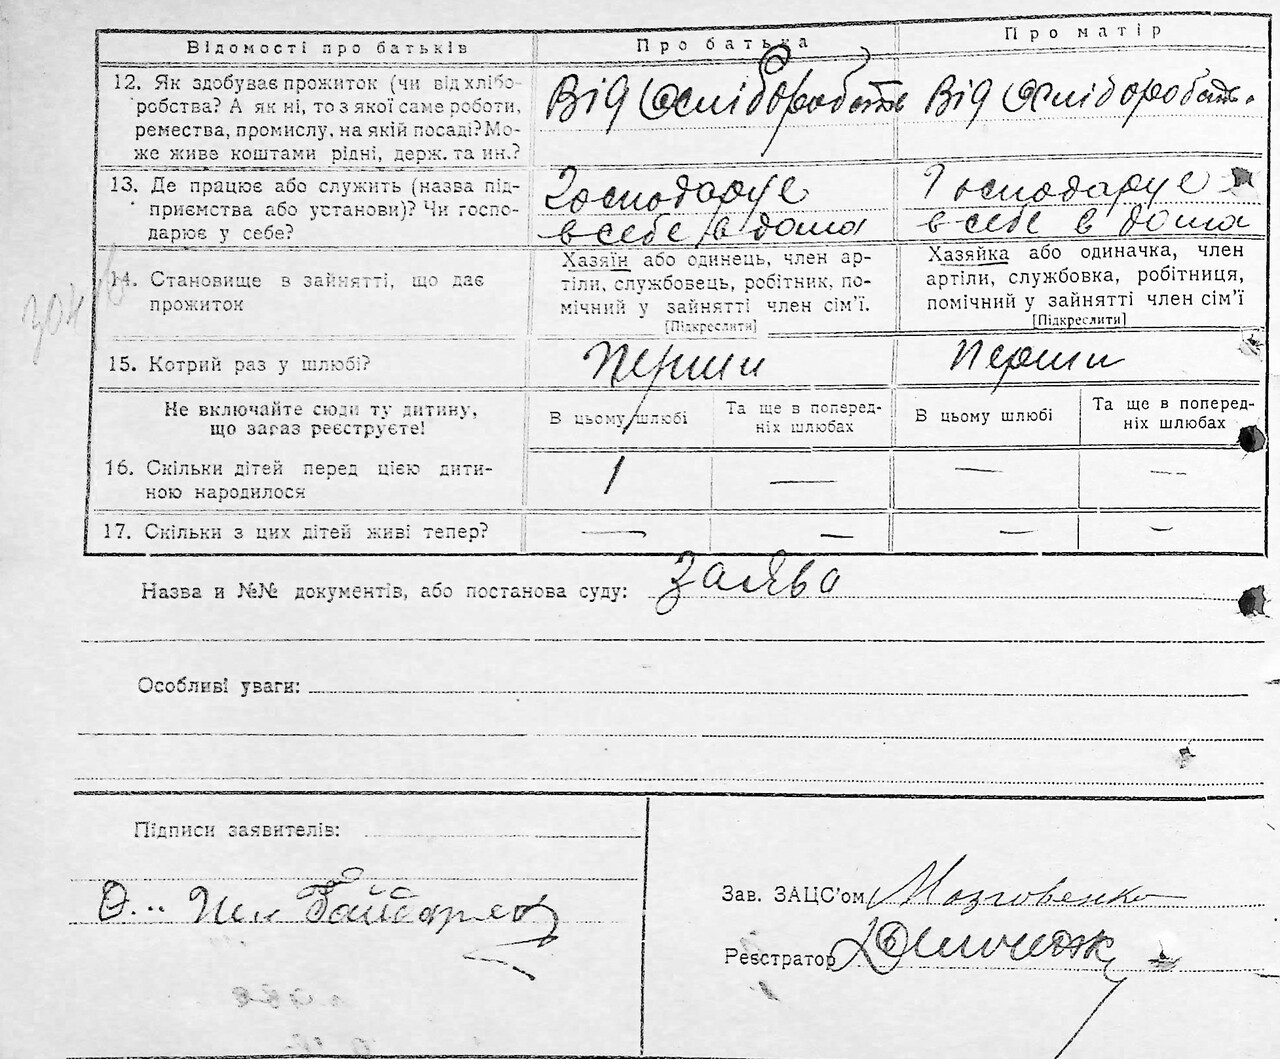 Відомості про батьків
Про батька
Про матір
12. Як здобуває прожиток (чи від хлібо-
робства? А як ні, то з якої саме роботи,
ремества, промислу, на якій посаді? Мо-
же живе коштами рідні, держ. та ин.?
Від
Від
13. Де працює або служить (назва під-
приємства або установи)? Чи госпо-
дарює у себе?
Господарує
в себе в дома
Господарує
в себе в дома
14. Становище в зайнятті, що дає
прожиток
Хазяїн або одинець, член ар-
тіли, службовець, робітник, по-
мічний у зайнятті член сім'ї.
[Підкреслити]
Хазяйка або одиначка, член
артіли, службовка, робітниця,
помічний у зайнятті член сім'ї
[Підкреслити]
15. Котрий раз у шлюбі?
Перши
Перши
Не включайте сюди ту дитину,
що зараз реєструєте!
В цьому шлюбі
Та ще в поперед-
ніх шлюбах
В цьому шлюбі
Та ще в поперед-
ніх шлюбах
16. Скільки дітей перед цією дити-
ною народилося
1
—
—
—
17. Скільки з цих дітей живі тепер?
—
—
—
—
Назва и №№ документів, або постанова суду: Заява
Особливі уваги:
Підписи заявителів:
Зав. ЗАЦС'ом Мозговенко
Реєстратор